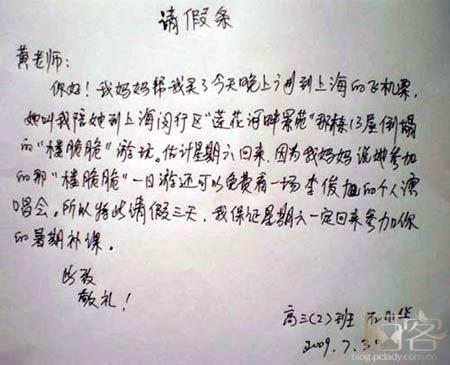 请假条
黄老师:
你好!我妈妈帮我买了今天晚上到上海的飞机票,
她叫我陪她到上海闵行区"莲花河畔景苑"那栋13层倒塌
的"楼脆脆"游玩。估计星期六回来,因为我妈妈说她参加
的那"楼脆脆"一日游还可以免费看一场李俊旭的个人演
唱会。所以特此请假三天,我保证星期六一定回来参加你
的暑期补课。
此致
敬礼!
高三(2)班
2009.7.3
blog.pclady.com.cn